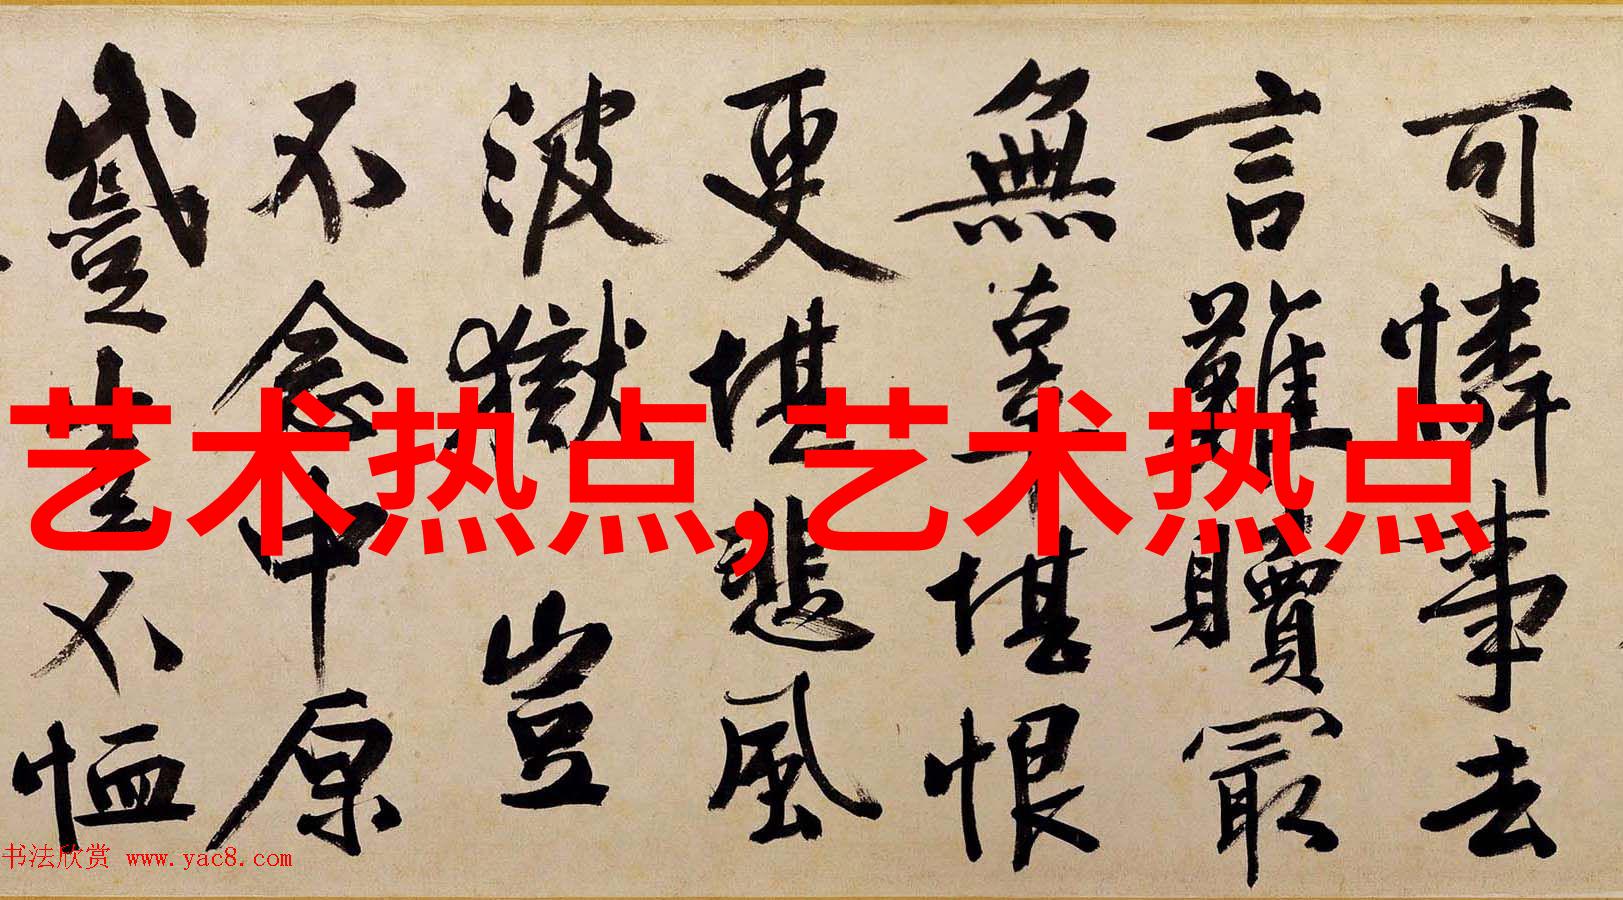 可憐事去
言難贖冣
無辜堪恨
更堪悲風
波獄豈
不念中原
蹙豈不恤
艺术热点,艺术热点
书法欣赏 www.yac8.com